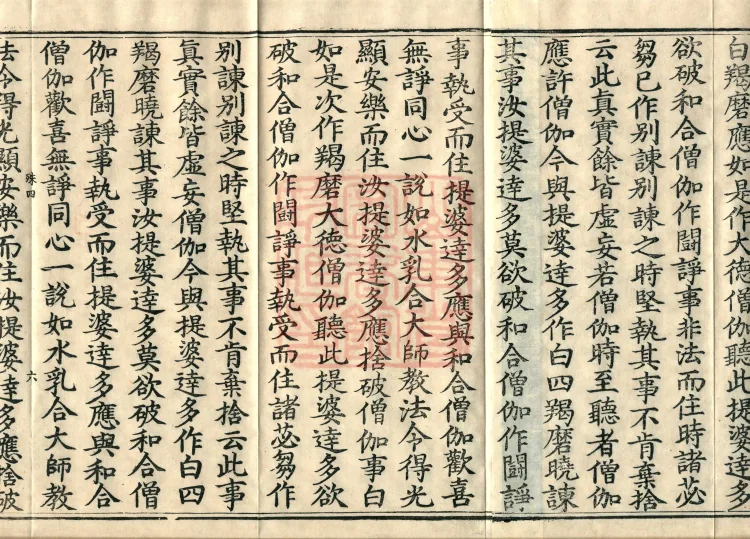 白羯磨應如是作大德僧伽聽此提婆達多
欲破和合僧伽作鬪諍事非法而住時諸苾
芻已作別諫別諫之時堅執其事不肯棄捨
云此真實餘皆虛妄若僧伽時至聽者僧伽
應許僧伽今與提婆達多作白四羯磨曉諫
其事汝提婆達多莫欲破和合僧伽作鬪諍
事執受而住提婆達多應與和合僧伽歡喜
無諍同心一說如水乳合大師教法令得光
顯安樂而住汝提婆達多應捨破僧伽事白
如是次作羯磨大德僧伽聽此提婆達多欲
破和合僧伽作鬪諍事執受而住諸苾芻作
別諫別諫之時堅執其事不肯棄捨云此事
真實餘皆虛妄僧伽今與提婆達多作白四
羯磨曉諫其事汝提婆達多莫欲破和合僧
伽作鬪諍事執受而住提婆達多應與和合
僧伽歡喜無諍同心一說如水乳合大師教
殊四 六
法令得光顯安樂而住汝提婆達多應捨破